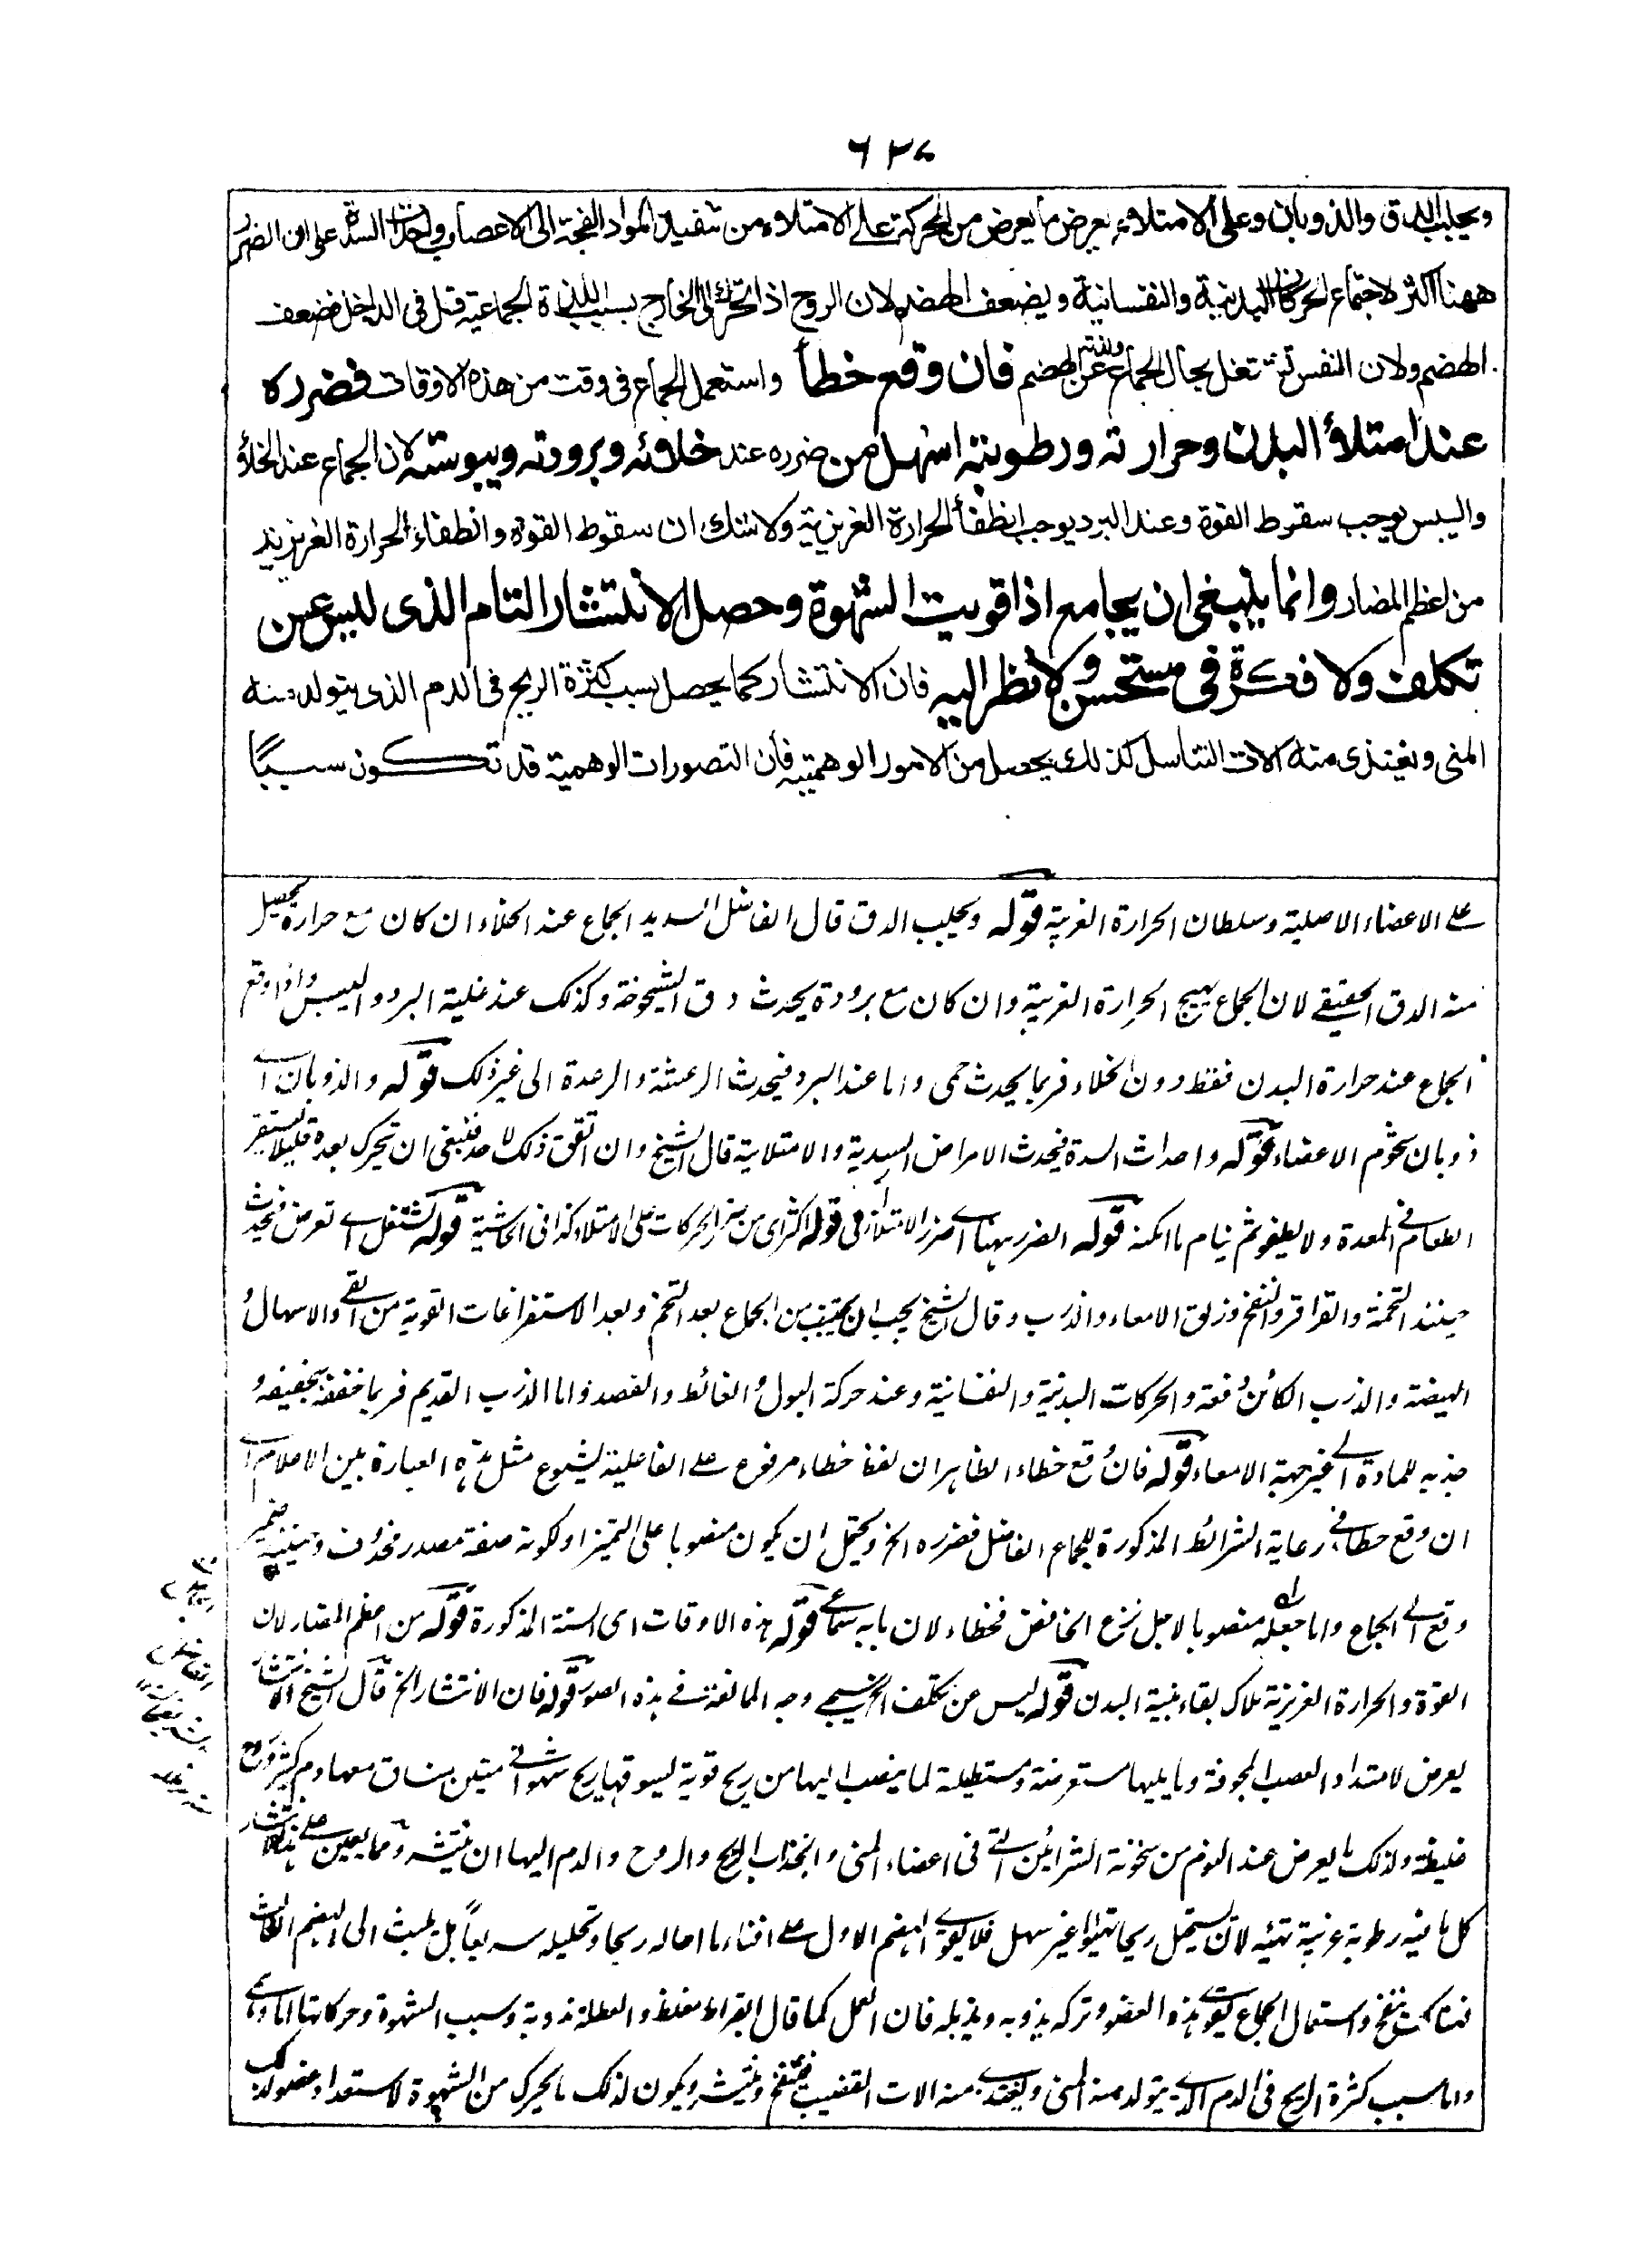 ٦٣٨
ويجلب الدق والذوبان وعلى الامتلاء يعرض ما يعرض من الحركة على الامتلاء من تنفيذ المواد الفجة الى الاعصاب واحداث السدة على ان الضرر
ههنا اكثر لاجتماع الحركات البدنية والنفسانية ويضعف الهضم لان الروح اذا تحرك الى الخارج بسبب اللذة الجماعية قل فى الداخل فضعف
الهضم ولان النفس تشتغل بحال الجماع ولذته عن الهضم فان وقع خطأ واستعمل الجماع فى وقت من هذه الاوقات فضرره
عند امتلاء البدن وحرارته ورطوبته اسهل من ضرره عند خلائه وبرودته ويبوسته لان الجماع عند الخلاء
واليبس يوجب سقوط القوة وعند البرد يوجب انطفأ الحرارة الغريزية ولا شك ان سقوط القوة وانطفاء الحرارة الغريزية
من اعظم المضار وانما ينبغى ان يجامع اذا قويت الشهوة وحصل الانتشار التام الذى ليس عن
تكلف ولا فكرة فى مستحسن ولا نظر اليه فان الانتشار كما يحصل بسبب كثرة الريح فى الدم الذى يتولد منه
المنى ويغتذى منه الات التناسل كذلك يحصل من الامور الوهمية فان التصورات الوهمية قد تكون سببًا
على الاعضاء الاصلية وسلطان الحرارة الغريبة قوله ويجلب الدق قال الفاضل السديد الجماع عند الخلاء ان كان مع حرارة يحصل
منه الدق الحقيقے لان الجماع يهيج الحرارة الغريبة وان كان مع برودة يحدث دق الشيخوخة وكذلك عند غلبة البرد واليبس واذا وقع
الجماع عند حرارة البدن فقط دون الخلاء فربما يحدث حمى واما عند البرد فيحدث الرعشة والرعدة الى غير ذلك قوله والذوبان اے
ذوبان شحوم الاعضاء قوله واحداث السدة فيحدث الامراض السددية والامتلائية قال الشيخ وان اتفق ذلك لاحد فينبغى ان تحرك بعده قليلا ليستقر
الطعام فى المعدة ولا يطفو ثم ينام ما امكنه قوله الضرر ههنا اے ضرر الامتلاء فى قوله اكثر اى من ضرر الحركات على الامتلاء كذا فى الحاشية قوله تشتغل اے تعرض فيحدث
حينئذ التخمة والقراقر والنفخ وزلق الامعاء والذرب وقال الشيخ يجب ان يجتنب من الجماع بعد التخم وبعد الاستفراغات القوية من القے والاسهال و
الهيضة والذرب الكائن دفعة والحركات البدنية والنفسانية وعند حركة البول والغائط والفصد واما الذرب القديم فربما خففه بتجفيفه و
جذبه للمادة الے غير جهة الامعاء قوله فان وقع خطاء الظاهر ان لفظ خطاء مرفوع على الفاعلية لشيوع مثل هذه العبارة بين الاعلام اے
ان وقع خطاء فى رعاية الشرائط المذكورة للجماع الفاضل فضرره الخ ويحتمل ان يكون منصوبا على التميز او لكونه صفة مصدر محذوف وحينئذ ضمير
وقع الے الجماع واما جعله منصوبا لاجل نزع الخافض فخطاء لان بابه سماعے قوله هذه الاوقات اى الستة المذكورة قوله من اعظم المضار لان
القوة والحرارة الغريزية ملاك بقاء بنية البدن قوله ليس عن تكلف الخ سيجے وجه الممانعة فے هذه الصور قوله فان الانتشار الخ قال الشيخ الانتشار
يعرض لامتداد العصب المجوفة وما يليها مستعرضة ومستطيلة لما ينصب اليها من ريح قوية يسوقها ريح شهوانے متين ينساق معها دم كثير وروح
غليظة ولذلك ما يعرض عند النوم من سخونة الشرائين التے فى اعضاء المنى وانجذاب الريح والروح والدم اليها ان ينتشر ومما يعين على هذا الانتشار
كل ما فيه رطوبة غريبة تهيئه لان يستحيل ريحا تهيئوا غير سهل فلا يقوے الهضم الاول على افناء ما احاله ريحا وتحليله سريعاً بل يلبث الى الهضم الثالث
فهناك ينفخ واستعمال الجماع يقوے هذه العضو وتركه يذوبه ويذبله فان العمل كما قال ابقراط مغلظ والعطلة مذوبة وسبب الشهوة وحركاتها اما وهمے
واما سبب كثرة الريح فى الدم الذے يتولد منه المنى ويغتذے منه الات القضيب فينتفخ وينتشر ويكون لذلك ما يحرك من الشهوة لاستعداد عضو لذلك